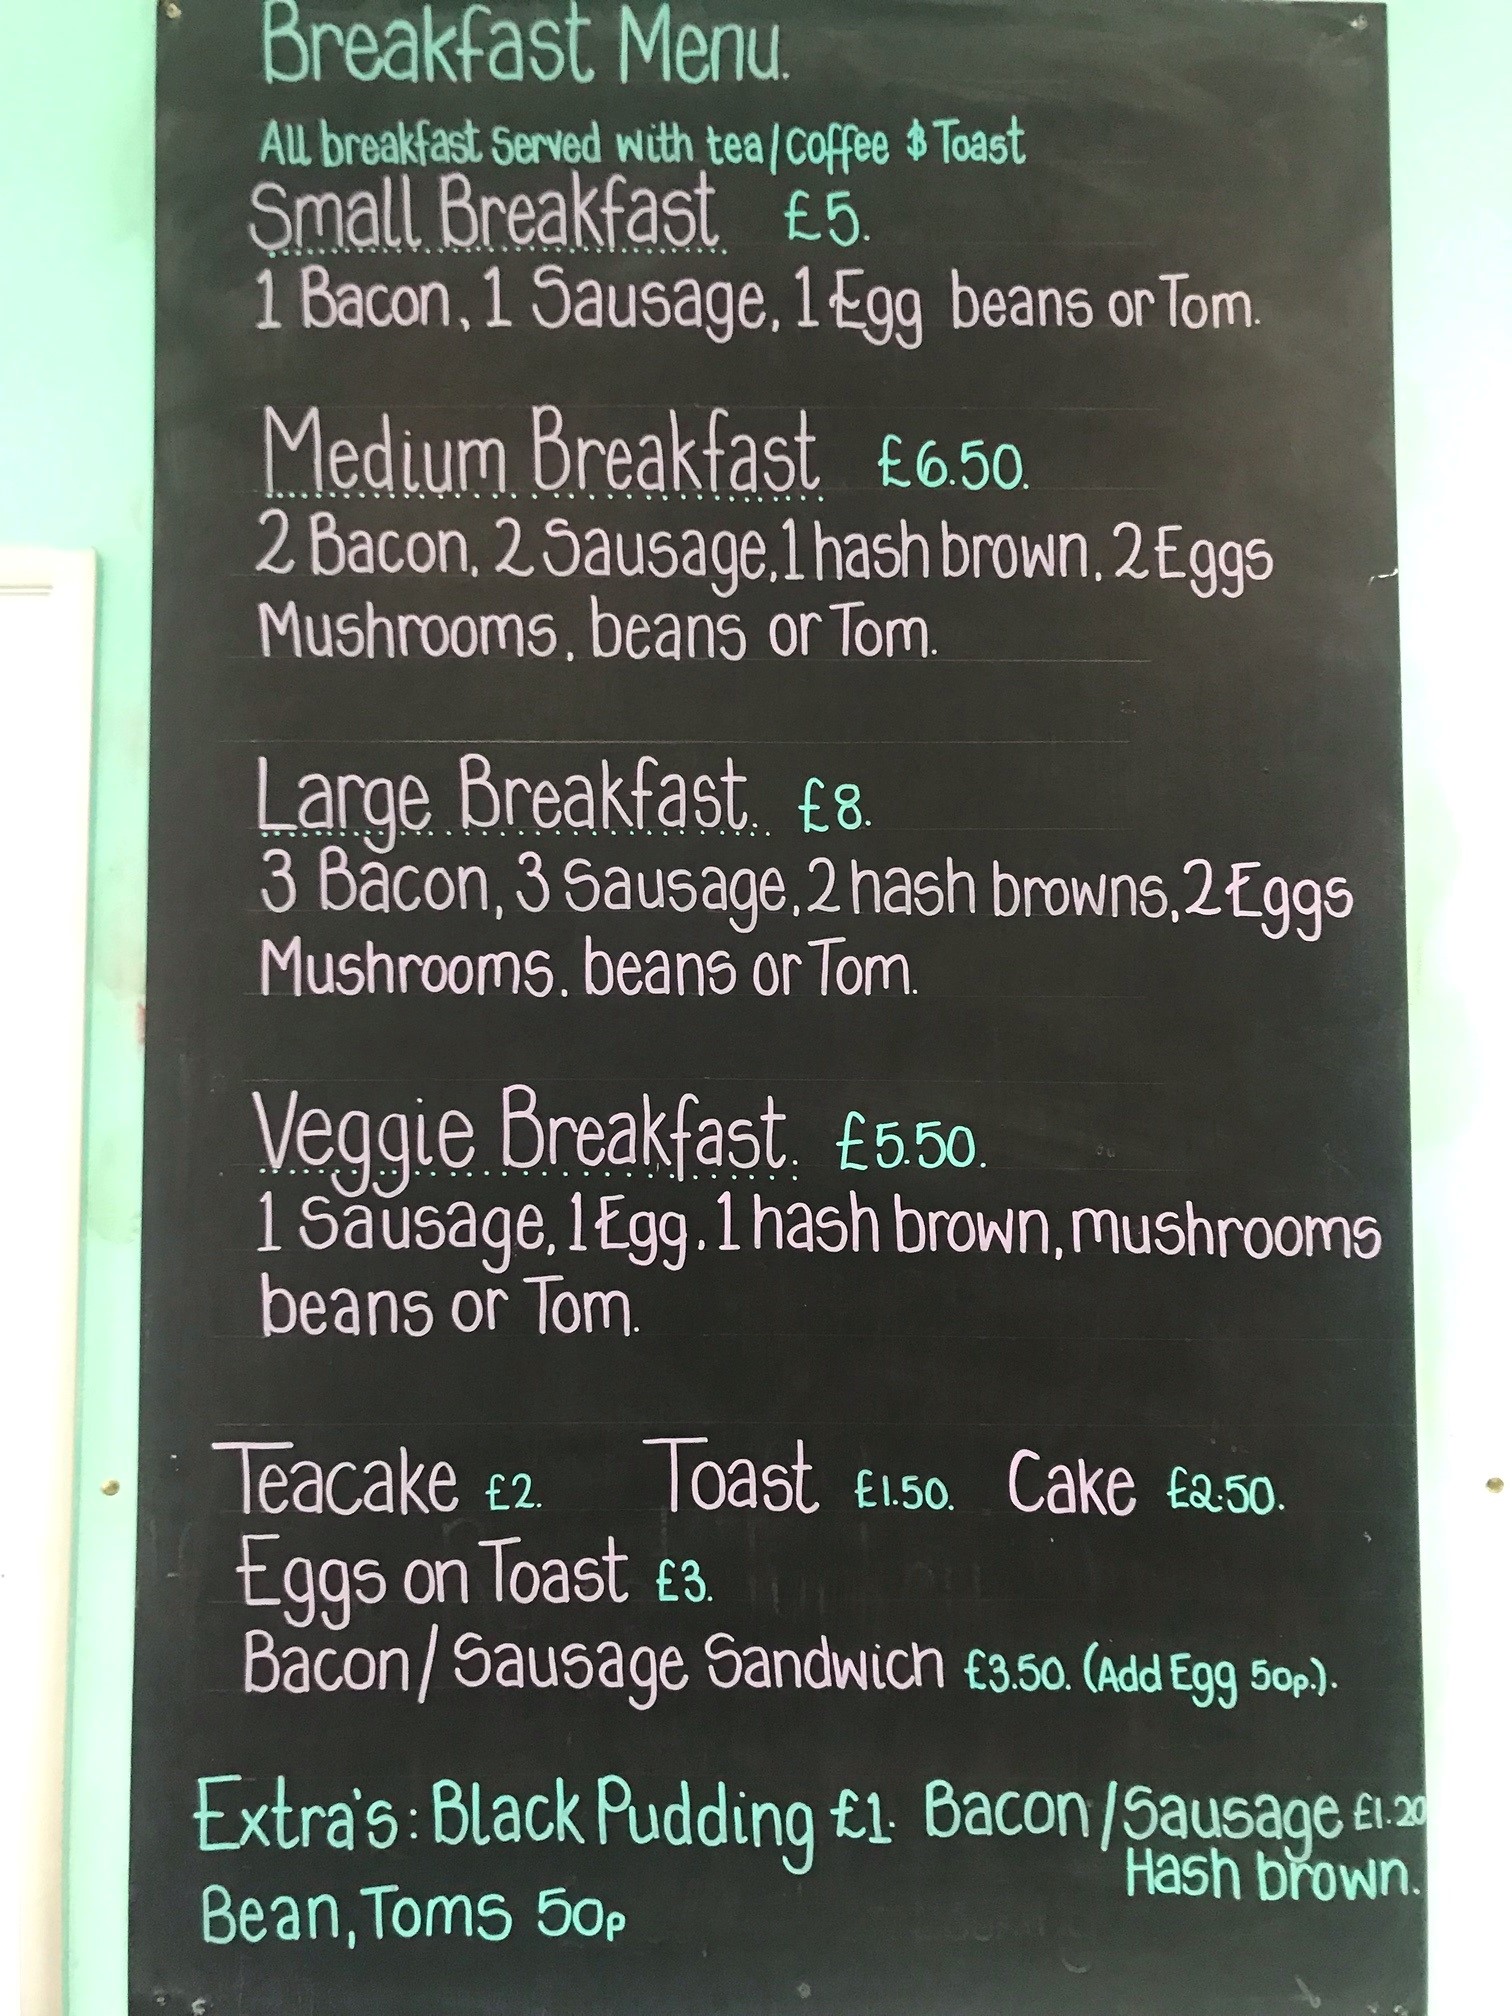 Breakfast Menu.
All breakfast Served with tea/Coffee & Toast
Small Breakfast £5.
1 Bacon, 1 Sausage, 1 Egg beans or Tom.
Medium Breakfast £6.50.
2 Bacon, 2 Sausage, 1 hash brown, 2 Eggs
Mushrooms, beans or Tom.
Large Breakfast. £8.
3 Bacon, 3 Sausage, 2 hash browns, 2 Eggs
Mushrooms, beans or Tom.
Veggie Breakfast. £5.50.
1 Sausage, 1 Egg, 1 hash brown, mushrooms
beans or Tom.
Teacake £2. Toast £1.50. Cake £2.50.
Eggs on Toast £3.
Bacon/Sausage Sandwich £3.50. (Add Egg 50p.).
Extra's: Black Pudding £1. Bacon/Sausage £1.20
Hash brown.
Bean, Toms 50p